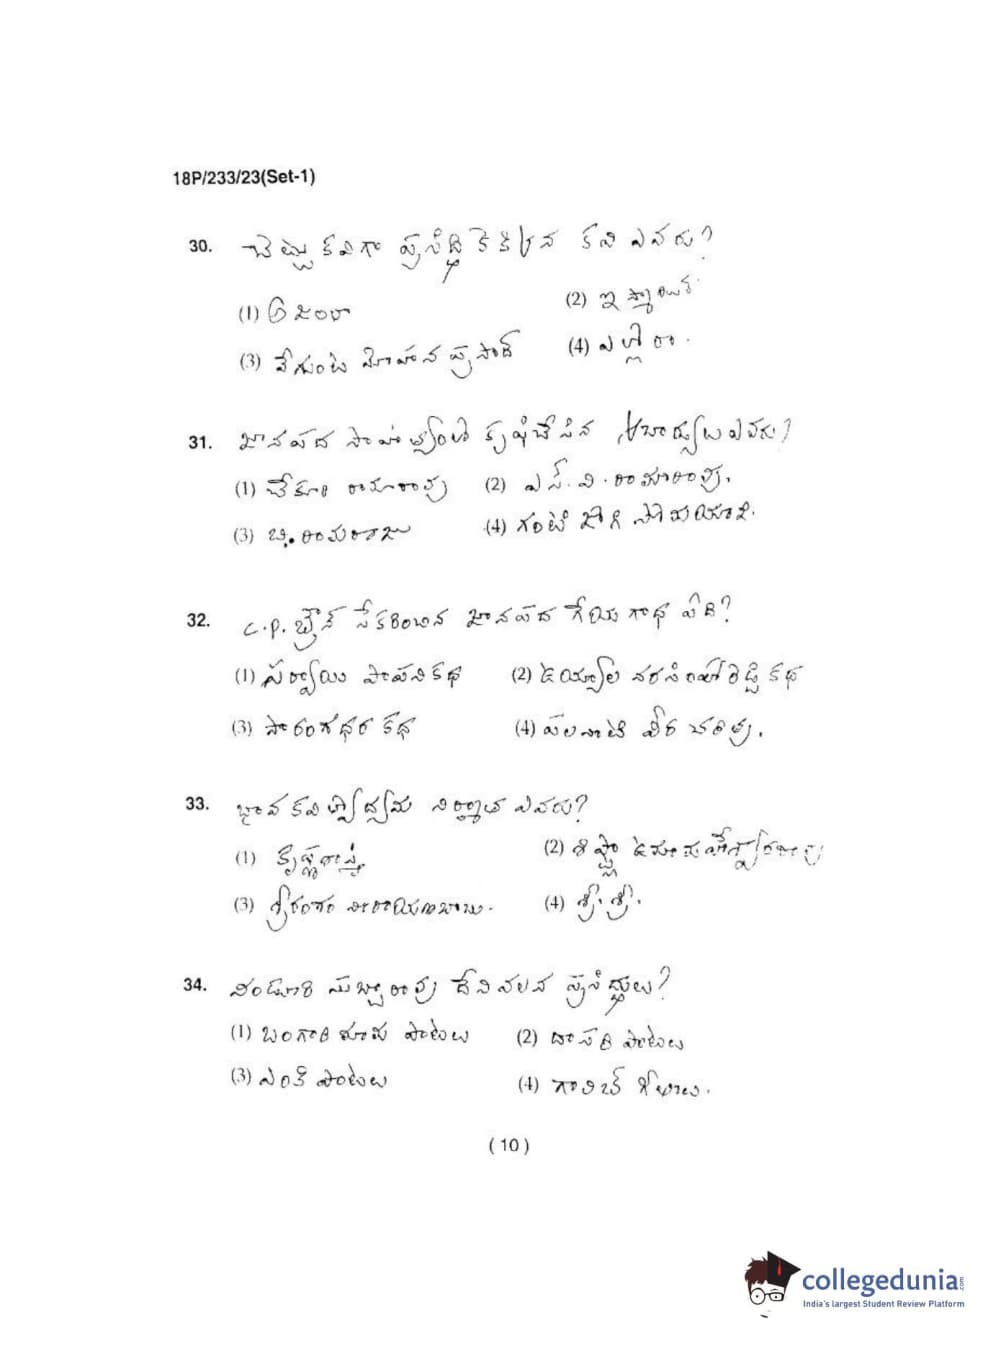 18P/233/23(Set-1)
30. చెట్టు కవిగా ప్రసిద్ధి కెక్కిన కవి ఎవరు?
(1) అజంతా (2) ఇస్మాయిల్
(3) వేగుంట మోహన ప్రసాద్ (4) ఎండ్లూరి
31. జానపద సాహిత్యంలో కృషిచేసిన ఎవరు?
(1) చేకూరి రామారావు (2) ఎస్.వి.రామారావు.
(3) బి.రామరాజు (4) గంటి జోగి సోమయాజి.
32. C.P. బ్రౌన్ సేకరించిన జానపద గేయ గాథ ఏది?
(1) సర్వాయి పాపని కథ (2) ఉయ్యాల నరసింహారెడ్డి కథ
(3) సారంగధర కథ (4) పలనాటి వీర చరిత్ర.
33. భావ కవితోద్యమ నిర్మాత ఎవరు?
(1) కృష్ణశాస్త్రి (2) శిష్ట్లా ఉమామహేశ్వరరావు
(3) శ్రీరంగం నారాయణబాబు. (4) శ్రీ.శ్రీ.
34. నండూరి సుబ్బారావు దేనివలన ప్రసిద్ధులు?
(1) బంగారి మామ పాటలు (2) దాసరి పాటలు
(3) ఎంకి పాటలు (4) గాలిబ్ గీతాలు.
( 10 )
collegedunia.com
India's largest Student Review Platform